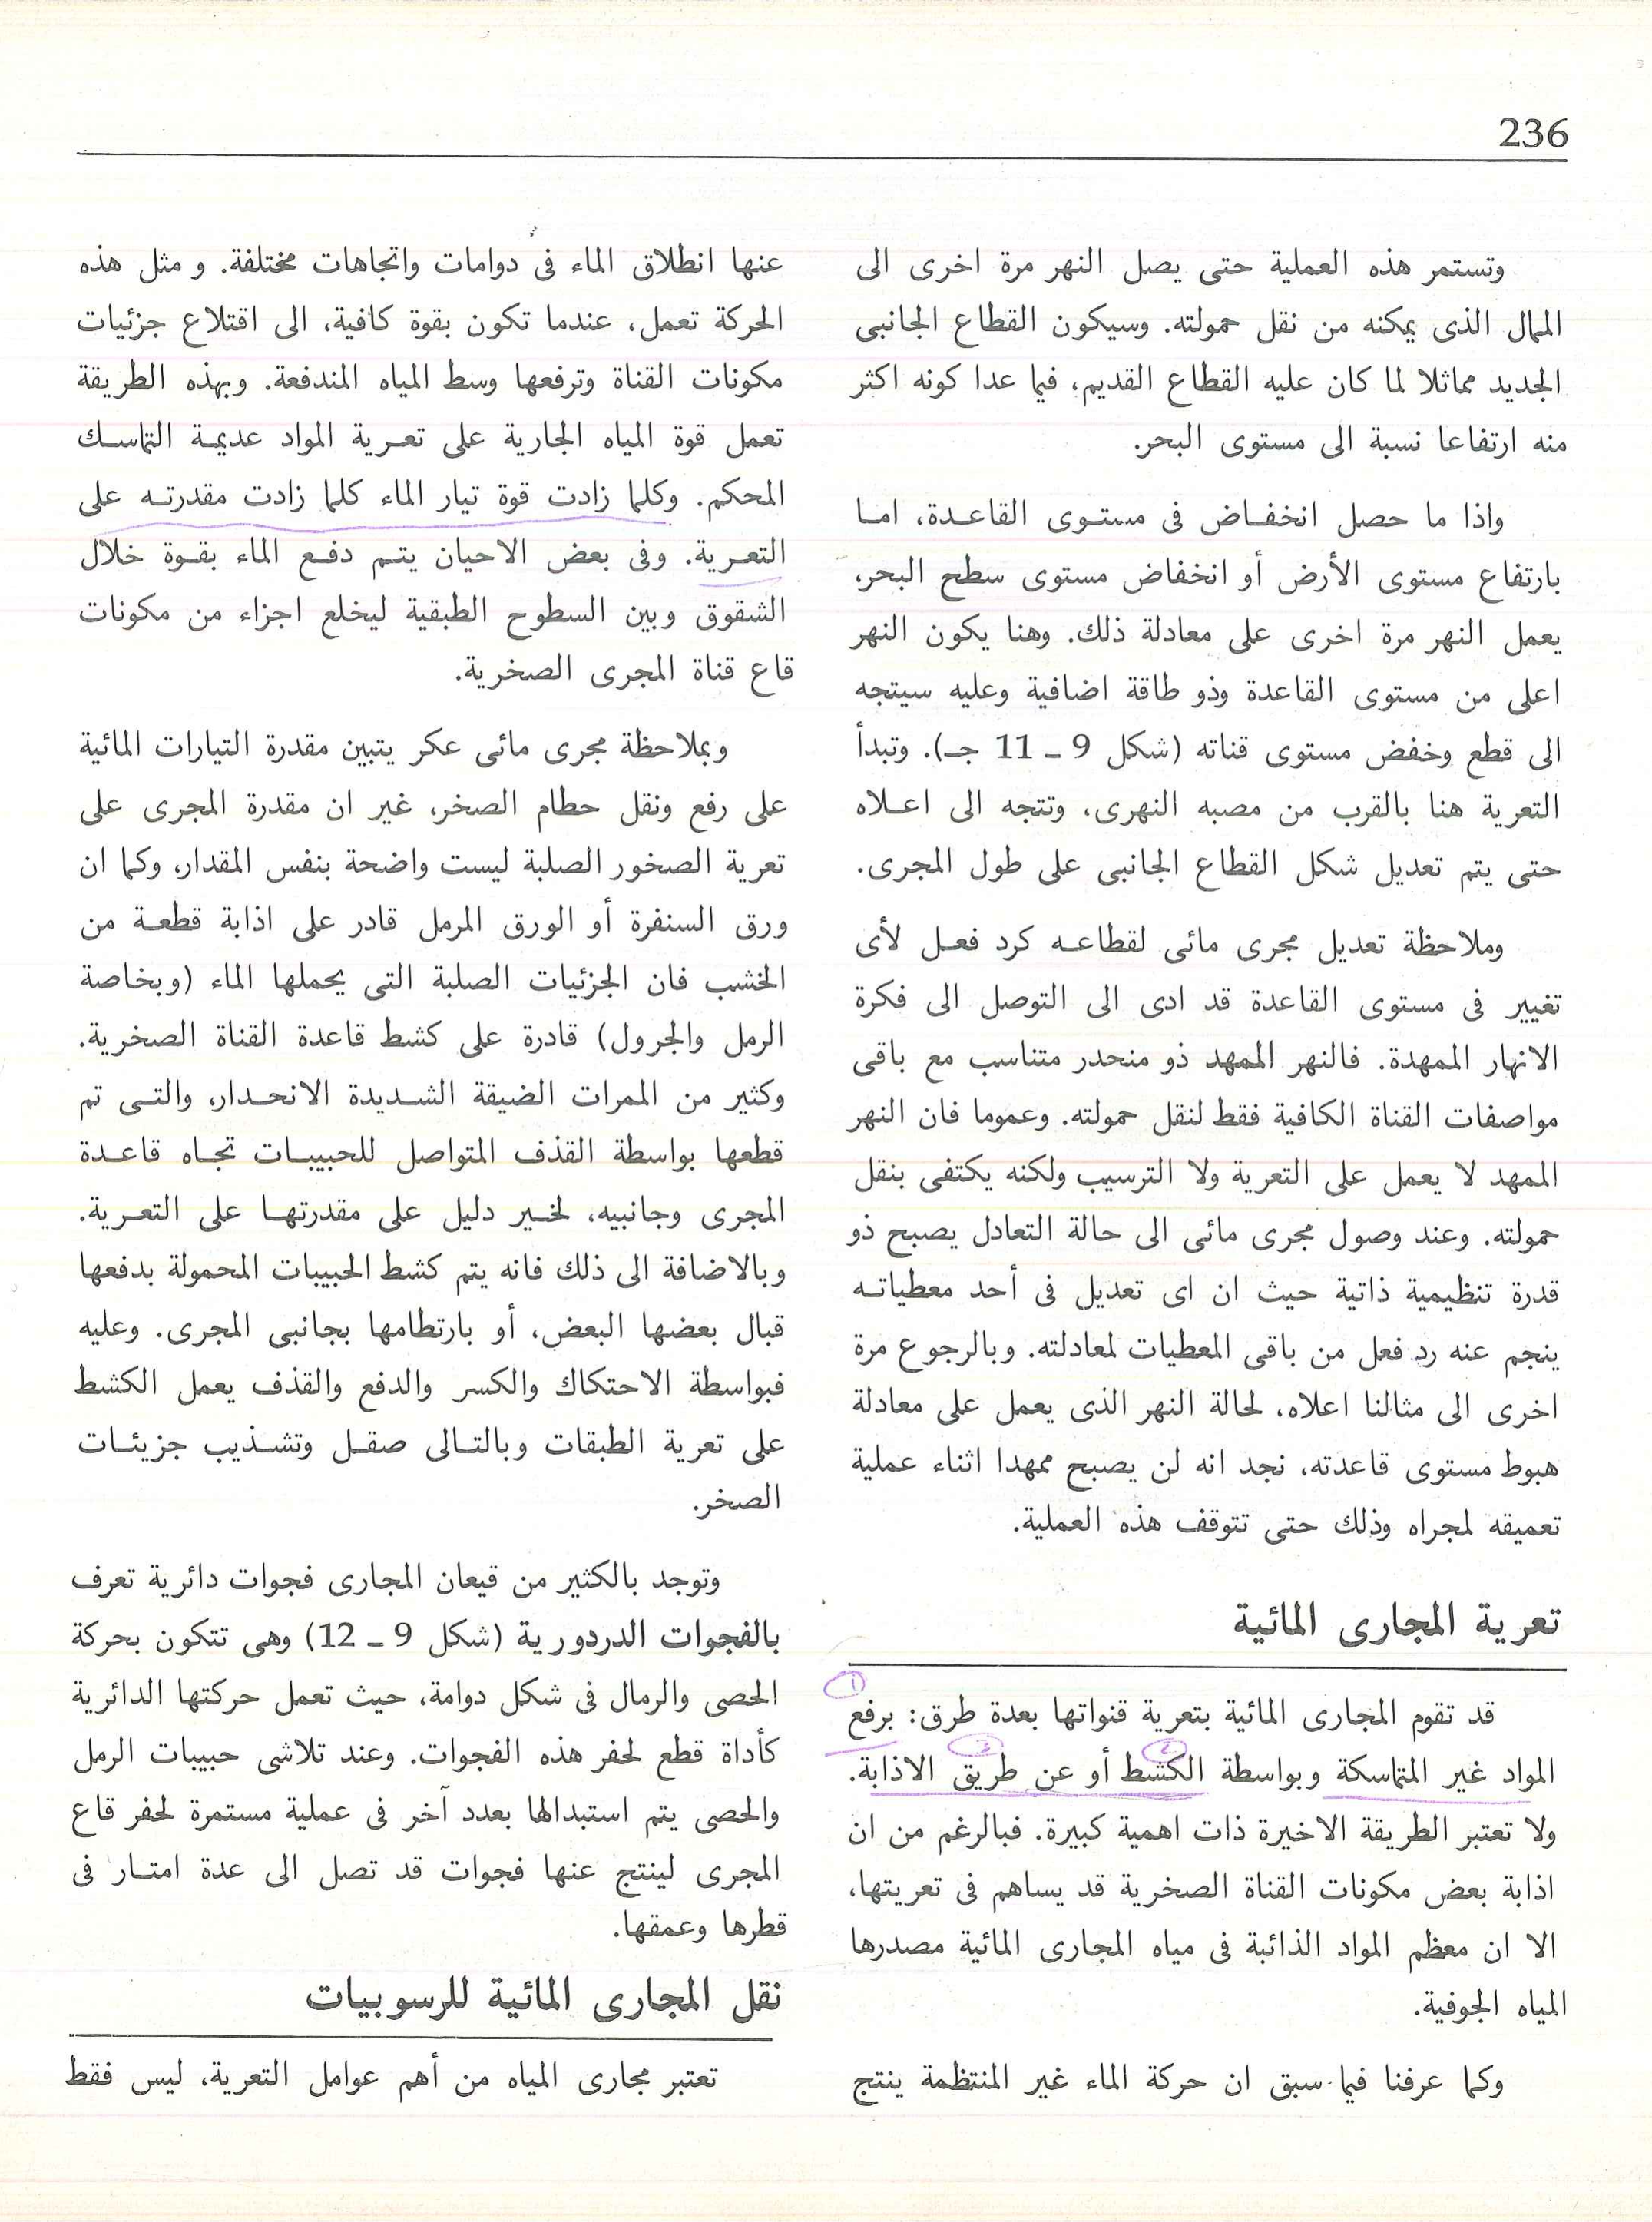 236
وتستمر هذه العملية حتى يصل النهر مرة اخرى الى
الممال الذى يمكنه من نقل حمولته. وسيكون القطاع الجانبى
الجديد مماثلا لما كان عليه القطاع القديم، فيما عدا كونه اكثر
منه ارتفاعا نسبة الى مستوى البحر.
واذا ما حصل انخفاض فى مستوى القاعدة، اما
بارتفاع مستوى الأرض أو انخفاض مستوى سطح البحر،
يعمل النهر مرة اخرى على معادلة ذلك. وهنا يكون النهر
اعلى من مستوى القاعدة وذو طاقة اضافية وعليه سيتجه
الى قطع وخفض مستوى قناته (شكل 9 ـ 11 جـ). وتبدأ
التعرية هنا بالقرب من مصبه النهرى، وتتجه الى اعلاه
حتى يتم تعديل شكل القطاع الجانبى على طول المجرى.
وملاحظة تعديل مجرى مائى لقطاعه كرد فعل لأى
تغيير فى مستوى القاعدة قد ادى الى التوصل الى فكرة
الانهار الممهدة. فالنهر الممهد ذو منحدر متناسب مع باقى
مواصفات القناة الكافية فقط لنقل حمولته. وعموما فان النهر
الممهد لا يعمل على التعرية ولا الترسيب ولكنه يكتفى بنقل
حمولته. وعند وصول مجرى مائى الى حالة التعادل يصبح ذو
قدرة تنظيمية ذاتية حيث ان اى تعديل فى أحد معطياته
ينجم عنه رد فعل من باقى المعطيات لمعادلته. وبالرجوع مرة
اخرى الى مثالنا اعلاه، لحالة النهر الذى يعمل على معادلة
هبوط مستوى قاعدته، نجد انه لن يصبح ممهدا اثناء عملية
تعميقه لمجراه وذلك حتى تتوقف هذه العملية.
تعرية المجارى المائية
قد تقوم المجارى المائية بتعرية قنواتها بعدة طرق: برفع
المواد غير المتماسكة وبواسطة الكشط أو عن طريق الاذابة.
ولا تعتبر الطريقة الاخيرة ذات اهمية كبيرة. فبالرغم من ان
اذابة بعض مكونات القناة الصخرية قد يساهم فى تعريتها،
الا ان معظم المواد الذائبة فى مياه المجارى المائية مصدرها
المياه الجوفية.
وكما عرفنا فيما سبق ان حركة الماء غير المنتظمة ينتج
عنها انطلاق الماء فى دوامات واتجاهات مختلفة. و مثل هذه
الحركة تعمل، عندما تكون بقوة كافية، الى اقتلاع جزئيات
مكونات القناة وترفعها وسط المياه المندفعة. وبهذه الطريقة
تعمل قوة المياه الجارية على تعرية المواد عديمة التماسك
المحكم. وكلما زادت قوة تيار الماء كلما زادت مقدرته على
التعرية. وفى بعض الاحيان يتم دفع الماء بقوة خلال
الشقوق وبين السطوح الطبقية ليخلع اجزاء من مكونات
قاع قناة المجرى الصخرية.
وبملاحظة مجرى مائى عكر يتبين مقدرة التيارات المائية
على رفع ونقل حطام الصخر، غير ان مقدرة المجرى على
تعرية الصخور الصلبة ليست واضحة بنفس المقدار، وكما ان
ورق السنفرة أو الورق المرمل قادر على اذابة قطعة من
الخشب فان الجزئيات الصلبة التى يحملها الماء (وبخاصة
الرمل والجرول) قادرة على كشط قاعدة القناة الصخرية.
وكثير من الممرات الضيقة الشديدة الانحدار، والتى تم
قطعها بواسطة القذف المتواصل للحبيبات تجاه قاعدة
المجرى وجانبيه، لخير دليل على مقدرتها على التعرية.
وبالاضافة الى ذلك فانه يتم كشط الحبيبات المحمولة بدفعها
قبال بعضها البعض، أو بارتطامها بجانبى المجرى. وعليه
فبواسطة الاحتكاك والكسر والدفع والقذف يعمل الكشط
على تعرية الطبقات وبالتالى صقل وتشذيب جزيئات
الصخر.
وتوجد بالكثير من قيعان المجارى فجوات دائرية تعرف
بالفجوات الدردورية (شكل 9 ـ 12) وهى تتكون بحركة
الحصى والرمال فى شكل دوامة، حيث تعمل حركتها الدائرية
كأداة قطع لحفر هذه الفجوات. وعند تلاشى حبيبات الرمل
والحصى يتم استبدالها بعدد آخر فى عملية مستمرة لحفر قاع
المجرى لينتج عنها فجوات قد تصل الى عدة امتار فى
قطرها وعمقها.
نقل المجارى المائية للرسوبيات
تعتبر مجارى المياه من أهم عوامل التعرية، ليس فقط